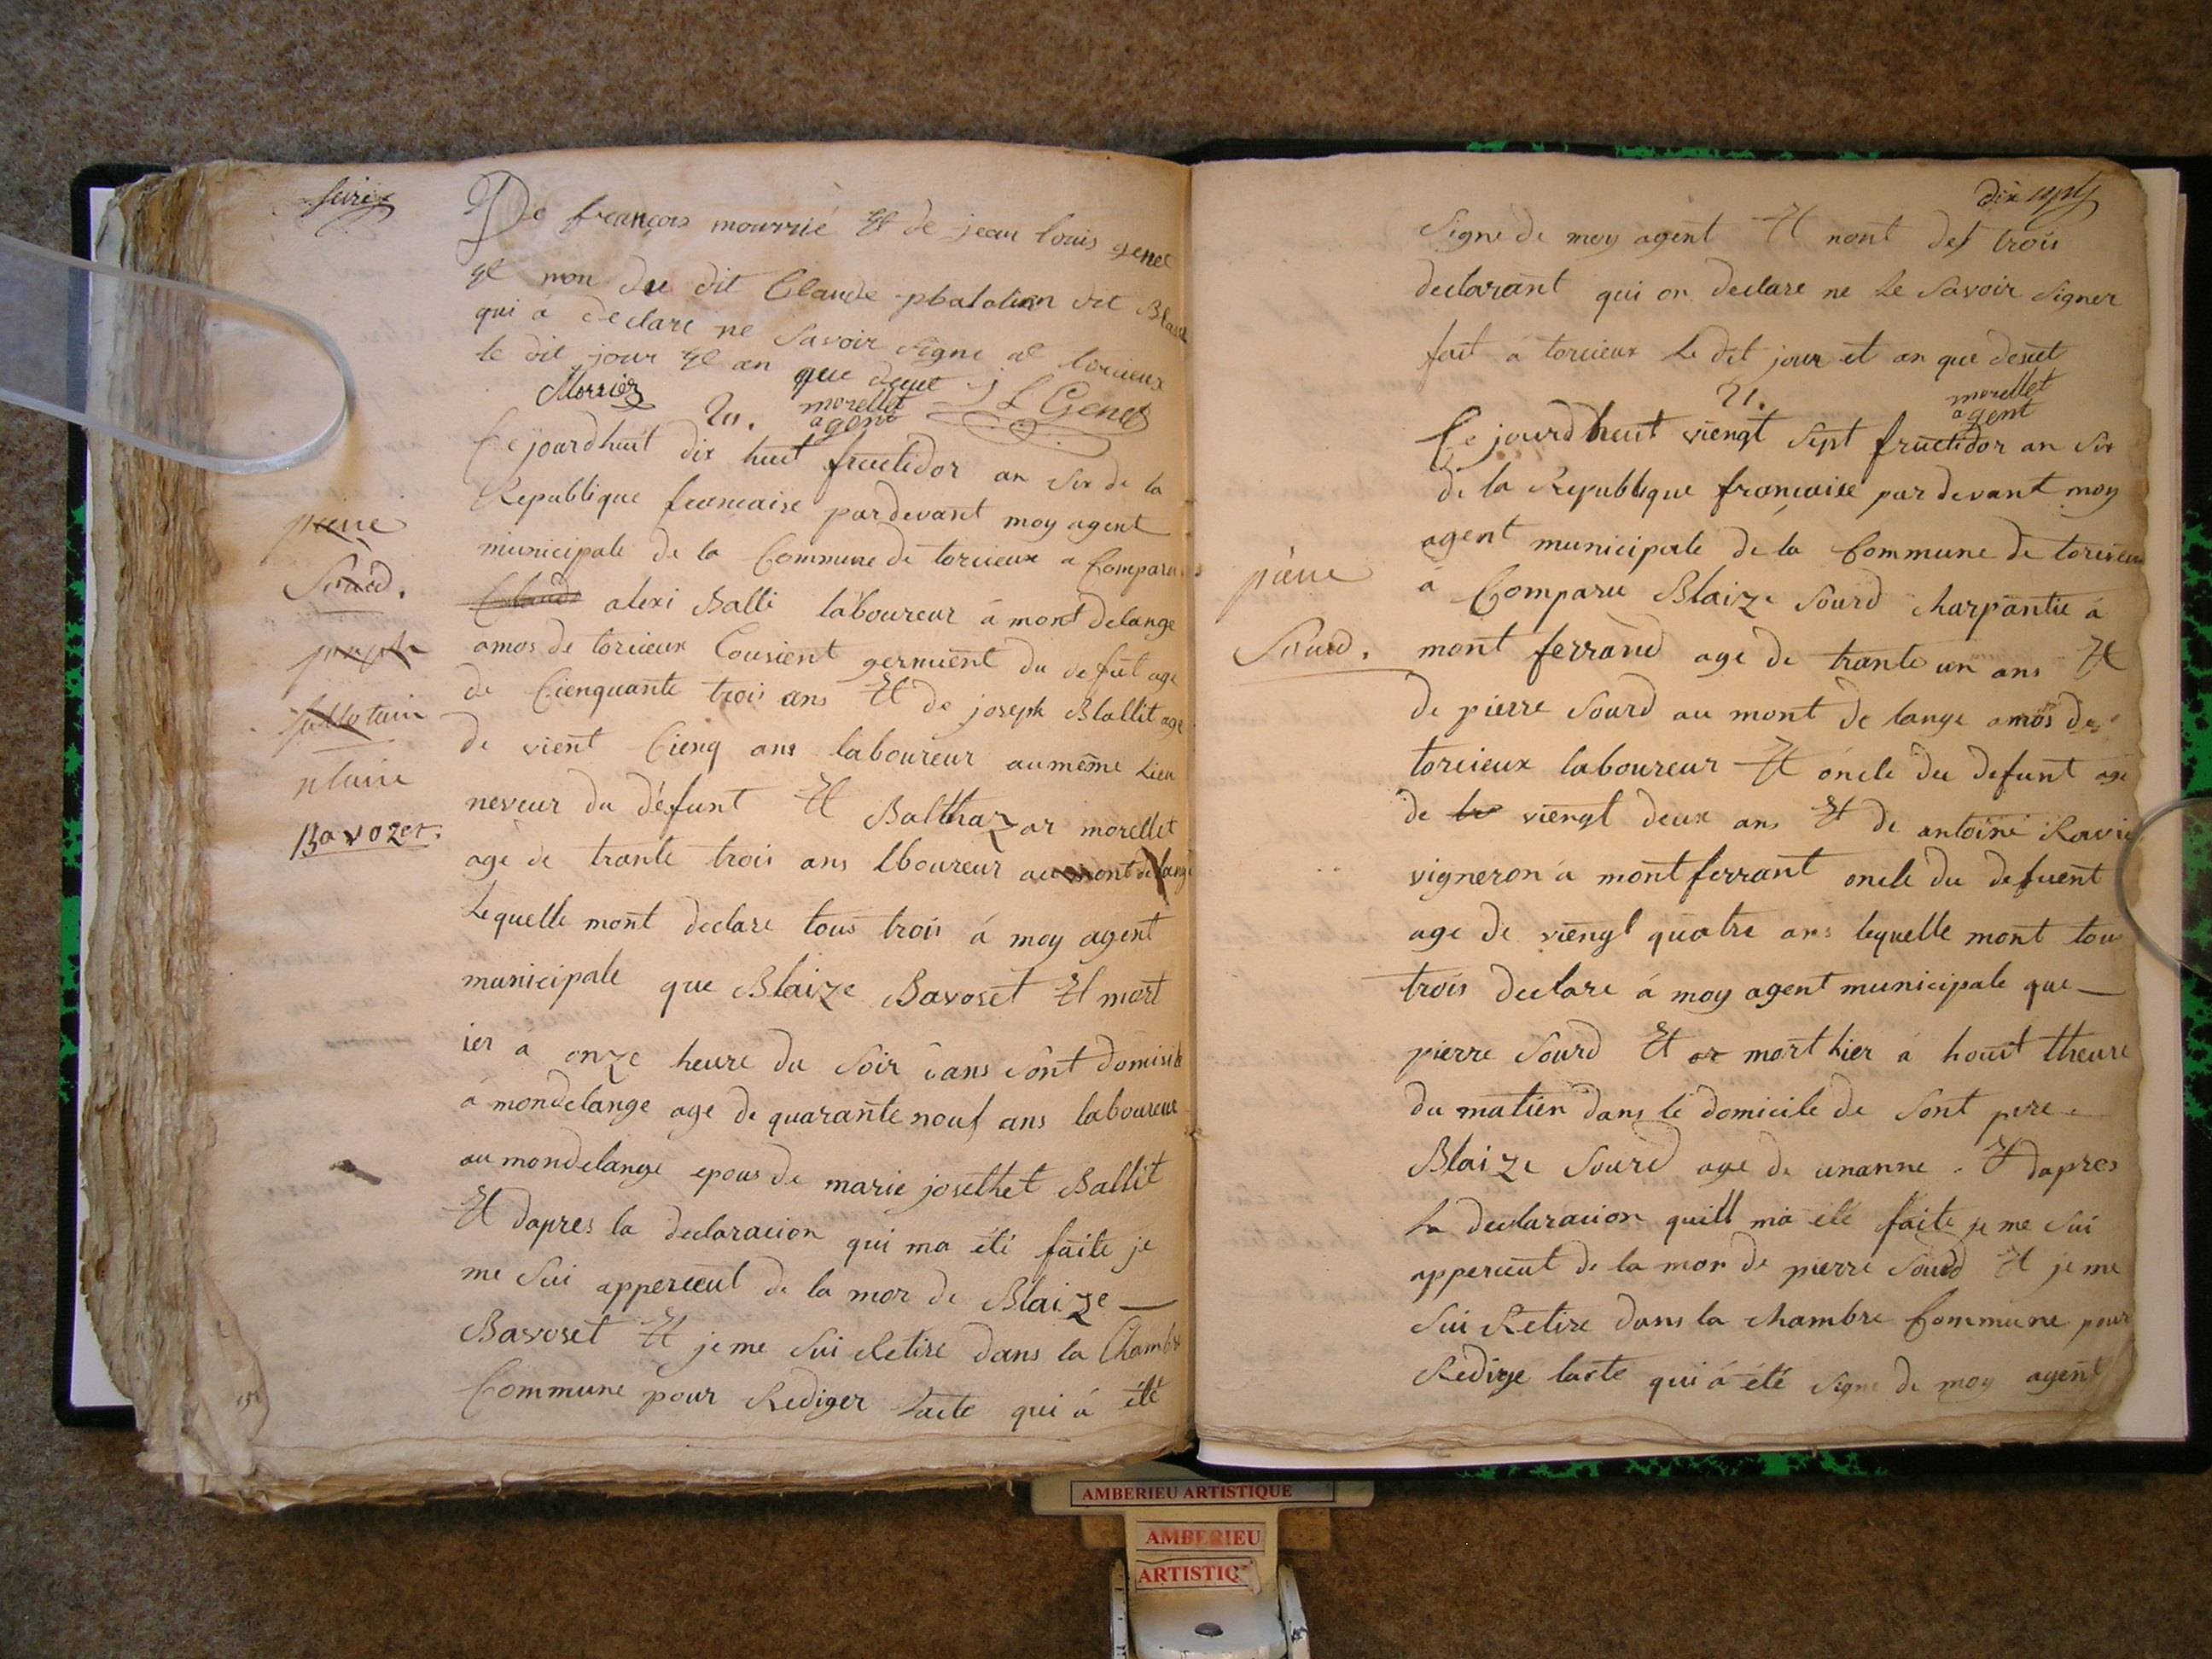 seize
De françois mourrié Et de jean louis genet
Et non du dit Claude
qui à declare ne Savoir Signe at torcieux
le dit jour Et an que desut
Morrier 20. morellet J L Genet
agent
Cejourdhuit dix huit fructidor an Six de la
Republique francaise pardevant moy agent
municipale de la Commune de torcieux a Comparu
alexi Balli laboureur á mont delange
amos de torcieux Cousient germient du defut age
de Cienquante trois ans Et de joseph Ballit age
de vient Cienq ans laboureur aumême Lieu
neveur du défunt Et Balthazar morellet
age de trante trois ans lboureur au mont de lange
Lequelle mont declare tous trois á moy agent
municipale que Blaize Bavoset Et mort
ier a onze heure du Soir dans Sont domisile
á mondelange age de quarante nouf ans laboureur
au mondelange epous de marie josethet Ballit
Et dapres la declaracion qui ma été faite je
me Sui apperceut de la mor de Blaize —
Bavoset Et je me Sui Retire dans la Chambre
Commune pour Rediger lacte qui á été
pierre
Sourd.
joseph
Bavozet.
dix sept
Signe de moy agent Et nont det trois
declarant qui on declare ne Le Savoir Signer
fait a torcieux Le dit jour et an que desut
21. morellet
agent
Ce jourdheut viengt Sept fructidor an Six
de la Republique francaise pardevant moy
agent municipale de la Commune de torcieux
à Comparu Blaize Sourd charpantie á
mont ferrand age de trante un ans Et
de pierre Sourd au mont de lange amos de
torcieux laboureur Et oncle du defunt age
de viengt deux ans Et de antoine Ravie
vigneron á montferrant oncle du defuent
age de viengt quatre ans lequelle mont tous
trois declare á moy agent municipale que —
pierre Sourd Et mort hier á houit theure
du matien dans le domicile de Sont pere
Blaize Sourd age de unanne. Et dapres
La declaracion quill ma été faite je me Sui
apperceut de la mor de pierre Sourd Et je me
Sui Retire dans la chambre Commune pour
Redige lacte qui á été Signe de moy agent
pierre
Sourd.